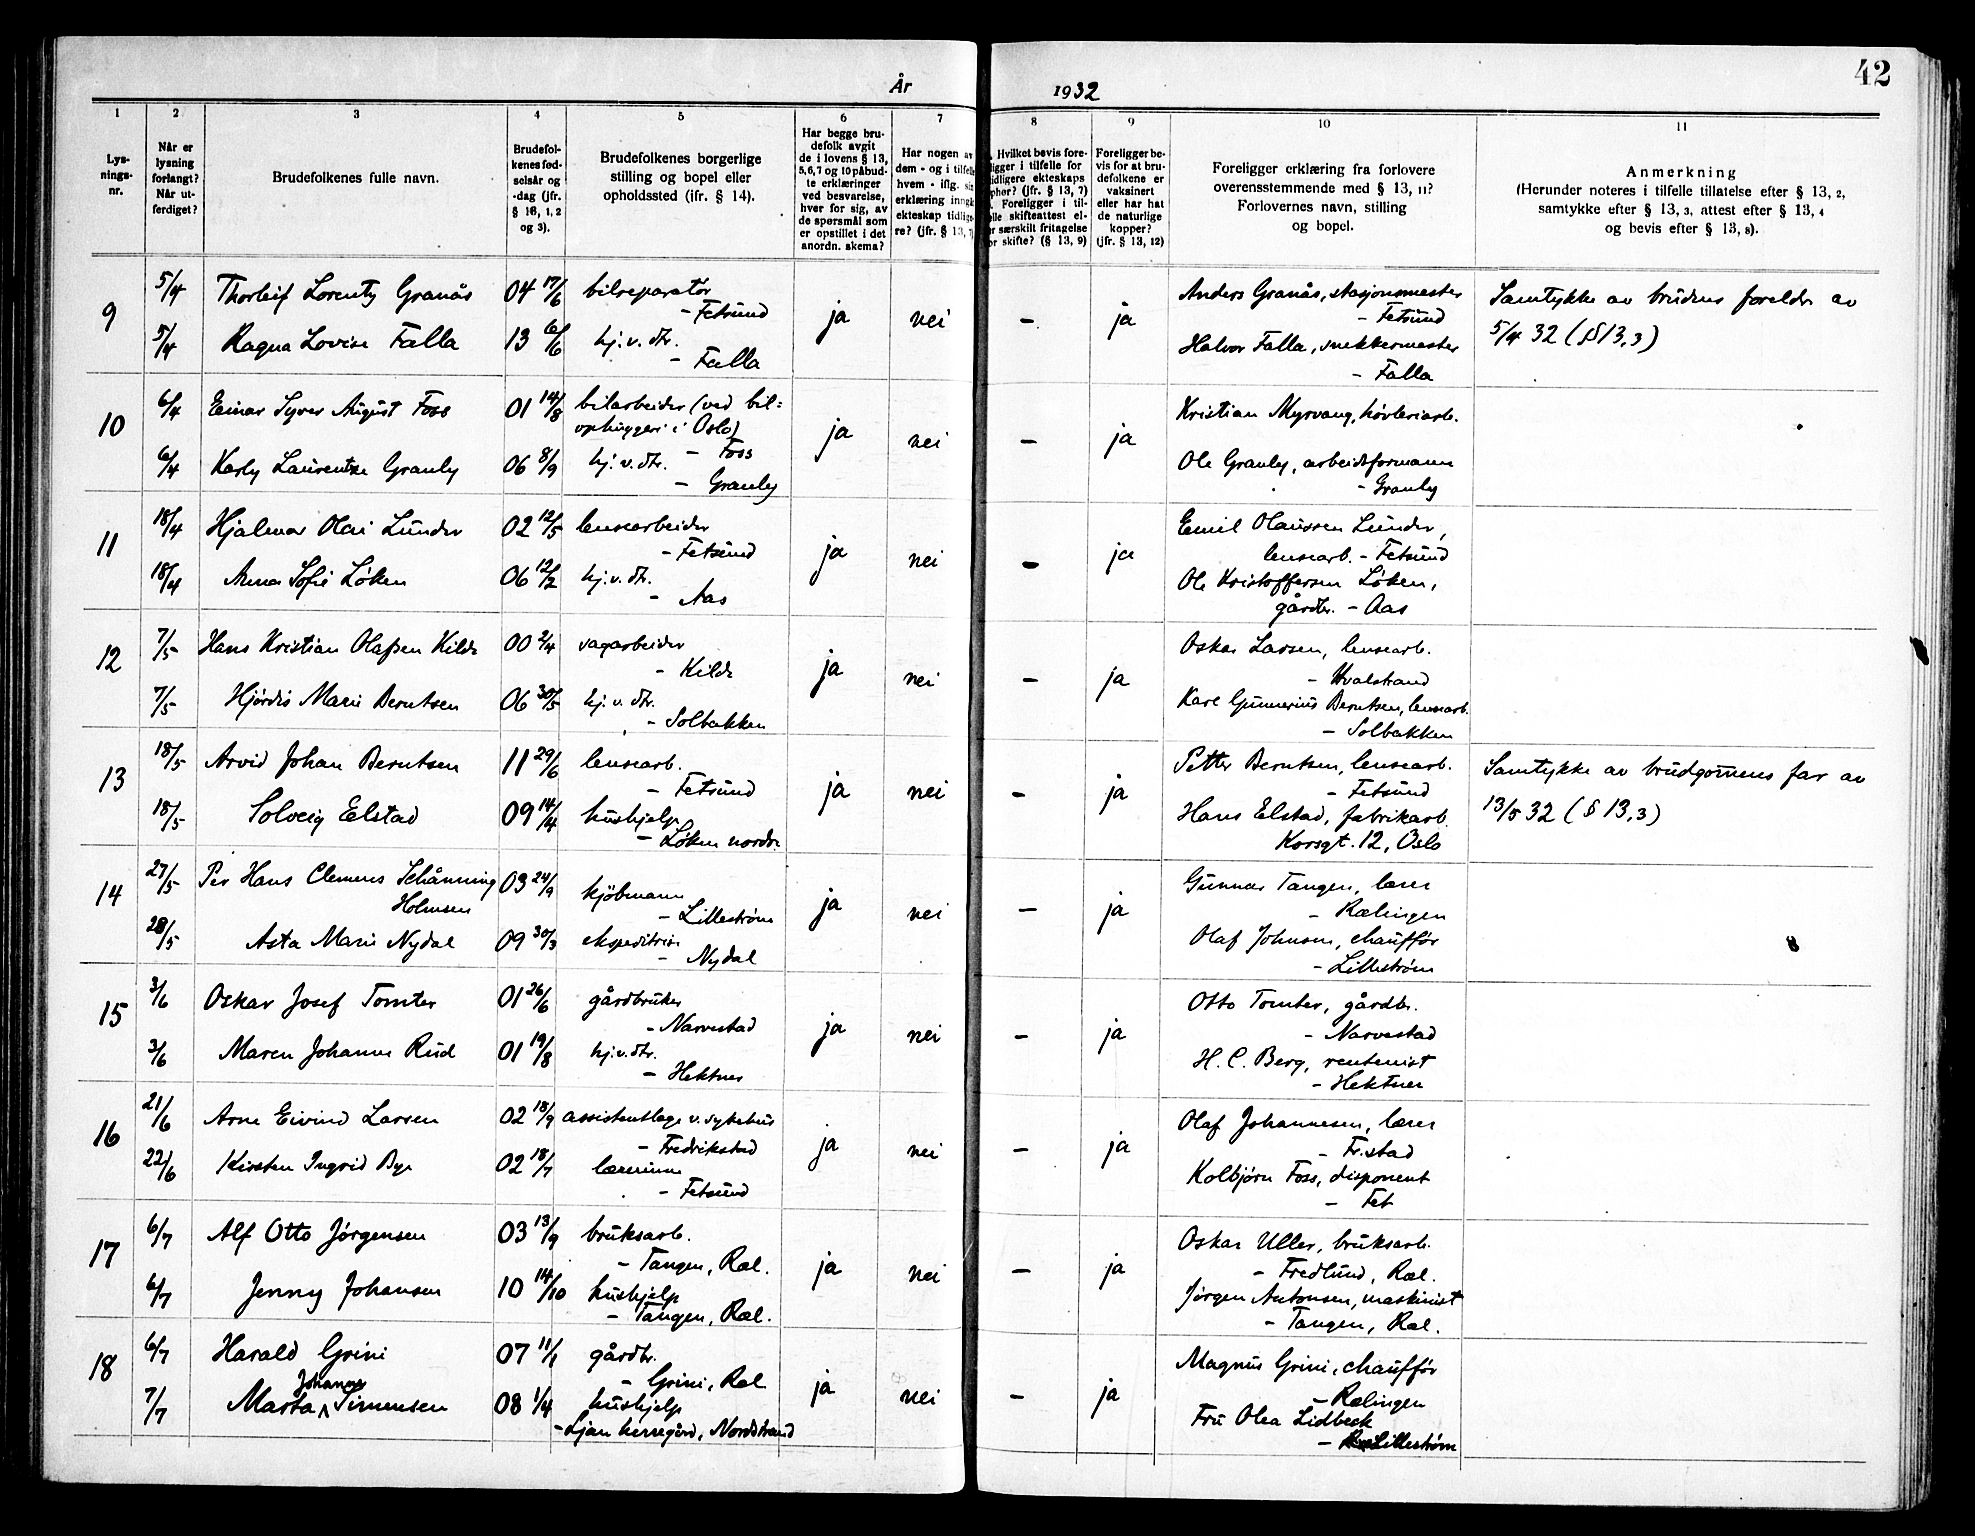 År 1932
42
1 2 3 4 5 6 7 8 9 10 11
Lys-
nings-
nr.
Når er
lysning
forlangt?
Når ut-
ferdiget?
Brudefolkenes fulle navn.
Brudefol-
kenes fød-
selsår og
-dag (jfr.
§ 16, 1, 2
og 3).
Brudefolkenes borgerlige
stilling og bopel eller
opholdssted (jfr. § 14).
Har begge bru-
defolk avgit
de i lovens § 13,
5, 6, 7 og 10 påbud-
te erklæringer
ved besvarelse,
hver for sig, av
de spørsmål som
er opstillet i det
anordn. skema?
Har nogen av
dem - og i tilfelle
hvem - iflg. sin
erklæring inngå
ekteskap tidlige
re? (jfr. § 13,
Hvilket bevis fore-
ligger i tilfelle for
idligere ekteskaps
phør? (jfr. § 13, 7)
Foreligger i til-
elle skifteattest el-
r særskilt fritagelse
or skifte? (§ 13, 9)
Foreligger be-
vis for at bru-
defolkene er
vaksinert
eller har hat
de naturlige
kopper?
(jfr. § 13, 12)
Foreligger erklæring fra forlovere
overensstemmende med § 13, 11?
Forlovernes navn, stilling
og bopel.
Anmerkning
(Herunder noteres i tilfelle tillatelse efter § 13, 2,
samtykke efter § 13, 3, attest efter § 13, 4
og bevis efter § 13, 8).
9 5/4 Thorleif Lorentz Granås 04 17/6 bilreparatør
- Fetsund ja nei - ja Anders Granås, stasjonsmester
- Fetsund Samtykke av brudens foreldre av
5/4 32 (§13,3)
5/4 Ragna Lovise Falla 13 6/6 hj.v. dtr.
- Falla Halvor Falla, snekkermester
- Falla
10 6/4 Einar Syver August Foss 01 14/8 bilarbeider (ved bil=
ophuggeri i Oslo)
- Foss ja nei - ja Kristian Myrvang, høvleriarb.
6/4 Karly Laurentze Granly 06 8/9 hj.v. dtr.
- Granly Ole Granly, arbeidsformann
- Granly
11 18/4 Hjalmar Olai Lunder 02 12/5 lensearbeider
- Fetsund ja nei - ja Emil Olaussen Lunder,
lensearb. - Fetsund
18/4 Anna Sofie Løken 06 12/2 hj.v. dtr.
- Aas Ole Kristoffersen Løken,
gårdbr. - Aas
12 7/5 Hans Kristian Olafsen Kilde 00 2/4 sagarbeider
- Kilde ja nei - ja Oskar Larsen, lensearb.
- Hvalstrand
7/5 Hjørdis Marie Berntsen 06 30/5 hj. v. dtr.
- Solbakken Karl Gunnerius Berntsen, lensearb.
- Solbakken
13 18/5 Arvid Johan Berntsen 11 29/6 lensearb.
- Fetsund ja nei - ja Petter Berntsen, lensearb.
- Fetsund Samtykke av brudgomens far av
13/5 32 (§ 13,3)
18/5 Solveig Elstad 09 14/4 hushjelp
- Løken nordre Hans Elstad, fabrikarb.
Korsgt. 12, Oslo
14 27/5 Per Hans Clemens Schånning
Holmsen 03 24/9 kjøbmann
- Lillestrøm ja nei - ja Gunnar Tangen, lærer
- Rælingen
28/5 Asta Marie Nydal 09 30/3 ekspeditrise
- Nydal Olaf Johnsen, chauffør
- Lillestrøm
15 3/6 Oskar Josef Tomter 01 26/6 gårdbruker
- Narvestad ja nei - ja Otto Tomter, gårdbr.
- Narvestad
3/6 Maren Johanne Rud 01 19/8 hj.v. dtr.
- Hektner H. C. Berg, rentenist
- Hektner
16 21/6 Arne Eivind Larsen 02 18/9 assistentlege v. sykehus
- Fredrikstad ja nei - ja Olaf Johannesen, lærer
- Fr.stad
22/6 Kirsten Ingrid Bye 02 18/7 lærerinne
- Fetsund Kolbjørn Foss, disponent
- Fet
17 6/7 Alf Otto Jørgensen 03 13/9 bruksarb.
- Tangen, Ræl. ja nei - ja Oskar Uller, bruksarb.
- Fredlund, Ræl.
6/7 Jenny Johansen 10 14/10 hushjelp
- Tangen, Ræl. Jørgen Antonsen, maskinist
- Tangen, Ræl.
18 6/7 Harald Grini 07 11/1 gårdbr.
- Grini, Ræl ja nei - ja Magnus Grini, chauffør
- Rælingen
7/7 Marta Johanne Simensen 08 1/4 hushjelp
- Ljan herregård, Nordstrand Fru Olea Lidbeck
- Lillestrøm